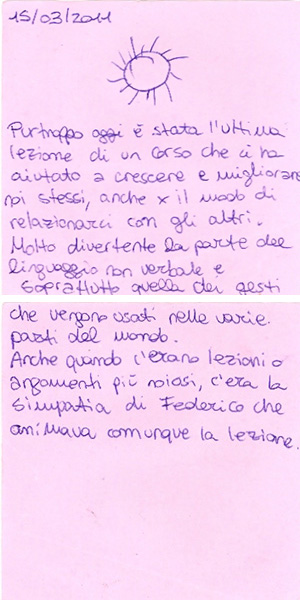 15/03/2011
Purtroppo oggi è stata l'ultima
lezione di un corso che ci ha
aiutato a crescere e migliorare
noi stessi, anche x il modo di
relazionarci con gli altri.
Molto divertente la parte del
linguaggio non verbale e
soprattutto quella dei gesti
che vengono usati nelle varie
parti del mondo.
Anche quando c'erano lezioni o
argomenti più noiosi, c'era la
simpatia di Federico che
animava comunque la lezione.